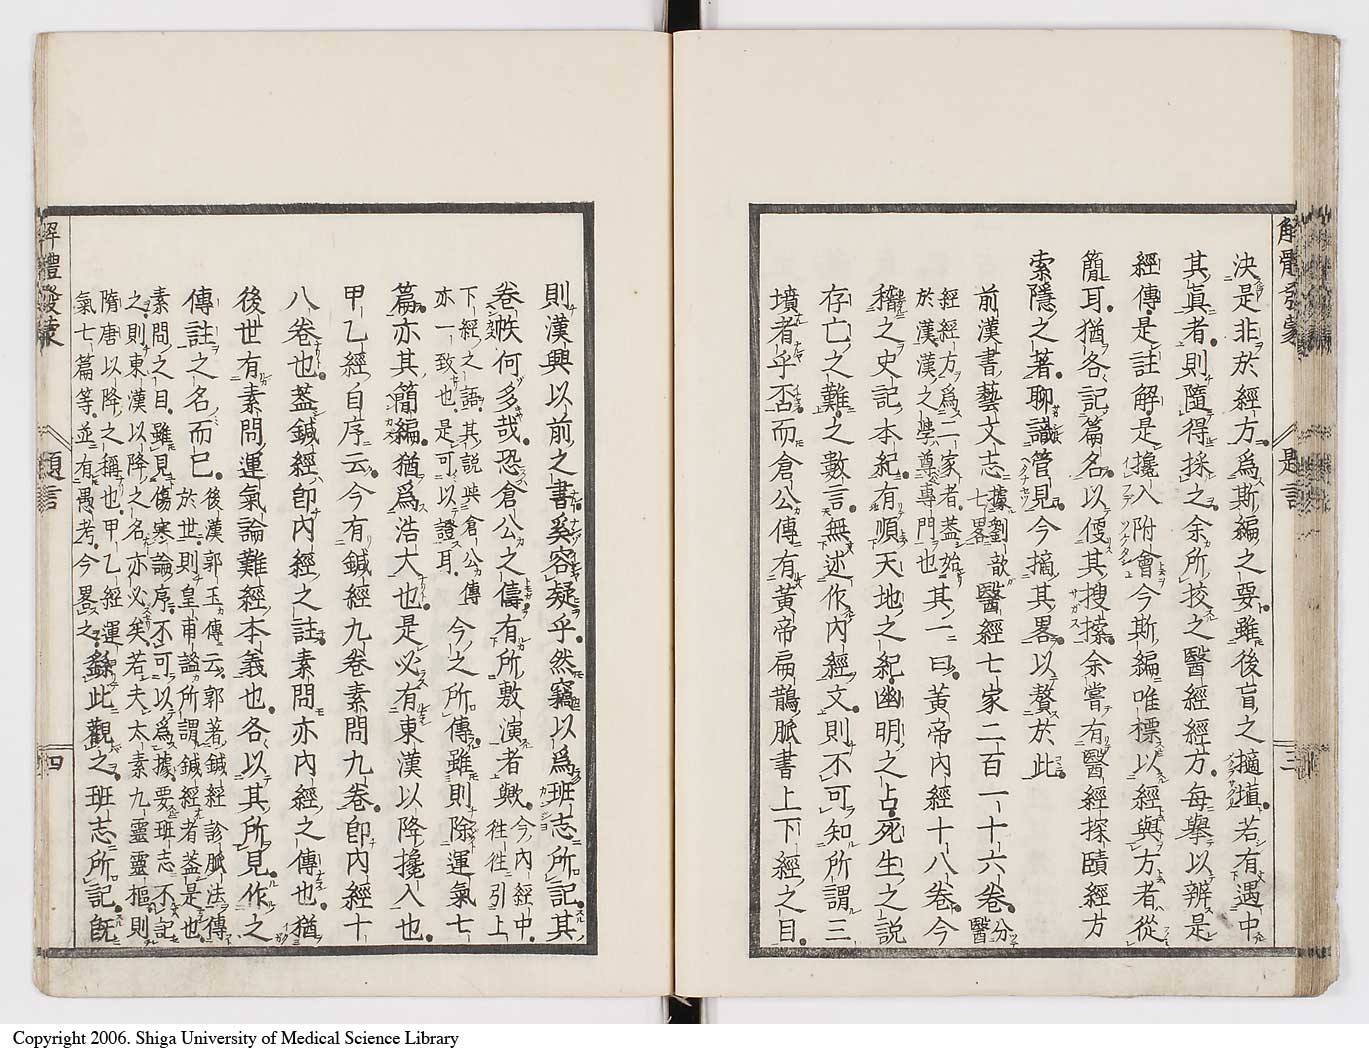 解體發蒙
題言
三
決是非於經方爲斯編之要雖後盲之擿埴若有遇中
其眞者則隨得採之余所挍之醫經經方每擧以辨是
經傳是註解是攙入附會今斯編唯標以經與方者從
簡耳猶各記篇名以便其搜㩁余嘗有醫經探賾經方
索隱之著聊識管見今摘其畧以贅於此
前漢書藝文志據劉歆七畧醫經七家二百一十六卷分醫
經經方爲二家者蓋始於漢漢之學尊專門也其一曰黃帝內經十八卷今
稽之史記本紀有順天地之紀幽明之占死生之說
存亡之難之數言無述作內經文則不可知所謂三
墳者乎否而倉公傳有黃帝扁鵲脈書上下經之目
則漢興以前之書奚容疑乎然竊以爲班志所記其
卷帙何多哉恐倉公之儔有所敷演者歟今內經中往往引上
下經之語其說與倉公傳亦一致也是可以證耳今之所傳雖則除運氣七
篇亦其簡編猶爲浩大也是必有東漢以降攙入也
甲乙經自序云今有鍼經九卷素問九卷卽內經十
八卷也蓋鍼經卽內經之註素問亦內經之傳也猶
後世有素問運氣論難經本義也各以其所見作之
傳註之名而已後漢郭玉傳云郭著鍼經診脈法傳於世則皇甫謐所謂鍼經者蓋是也
素問之目雖見傷寒論序不可以爲據要班志不記之則東漢以降之名亦必矣若夫太素九靈靈樞則
隋唐以降之稱也甲乙經運氣七篇等並有愚考今畧之繇此觀之班志所記旣
解體發蒙
題言
四
Copyright 2006. Shiga University of Medical Science Library